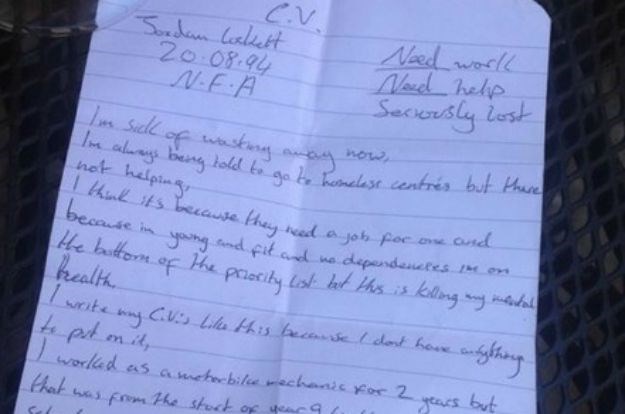 C.V.
Jordan
20.08.94
N.F.A
Need work
Need help
Seriously lost
I'm sick of wasting away now,
I'm always being told to go to homeless centres but there
not helping,
I think it's because they need a job for one and
because im young and fit and no dependencies im on
the bottom of the priority list but this is killing my mental
health.
I write my C.V.'s like this because I dont have anything
to put on it,
I worked as a motorbike mechanic for 2 years but
that was from the start of year 9